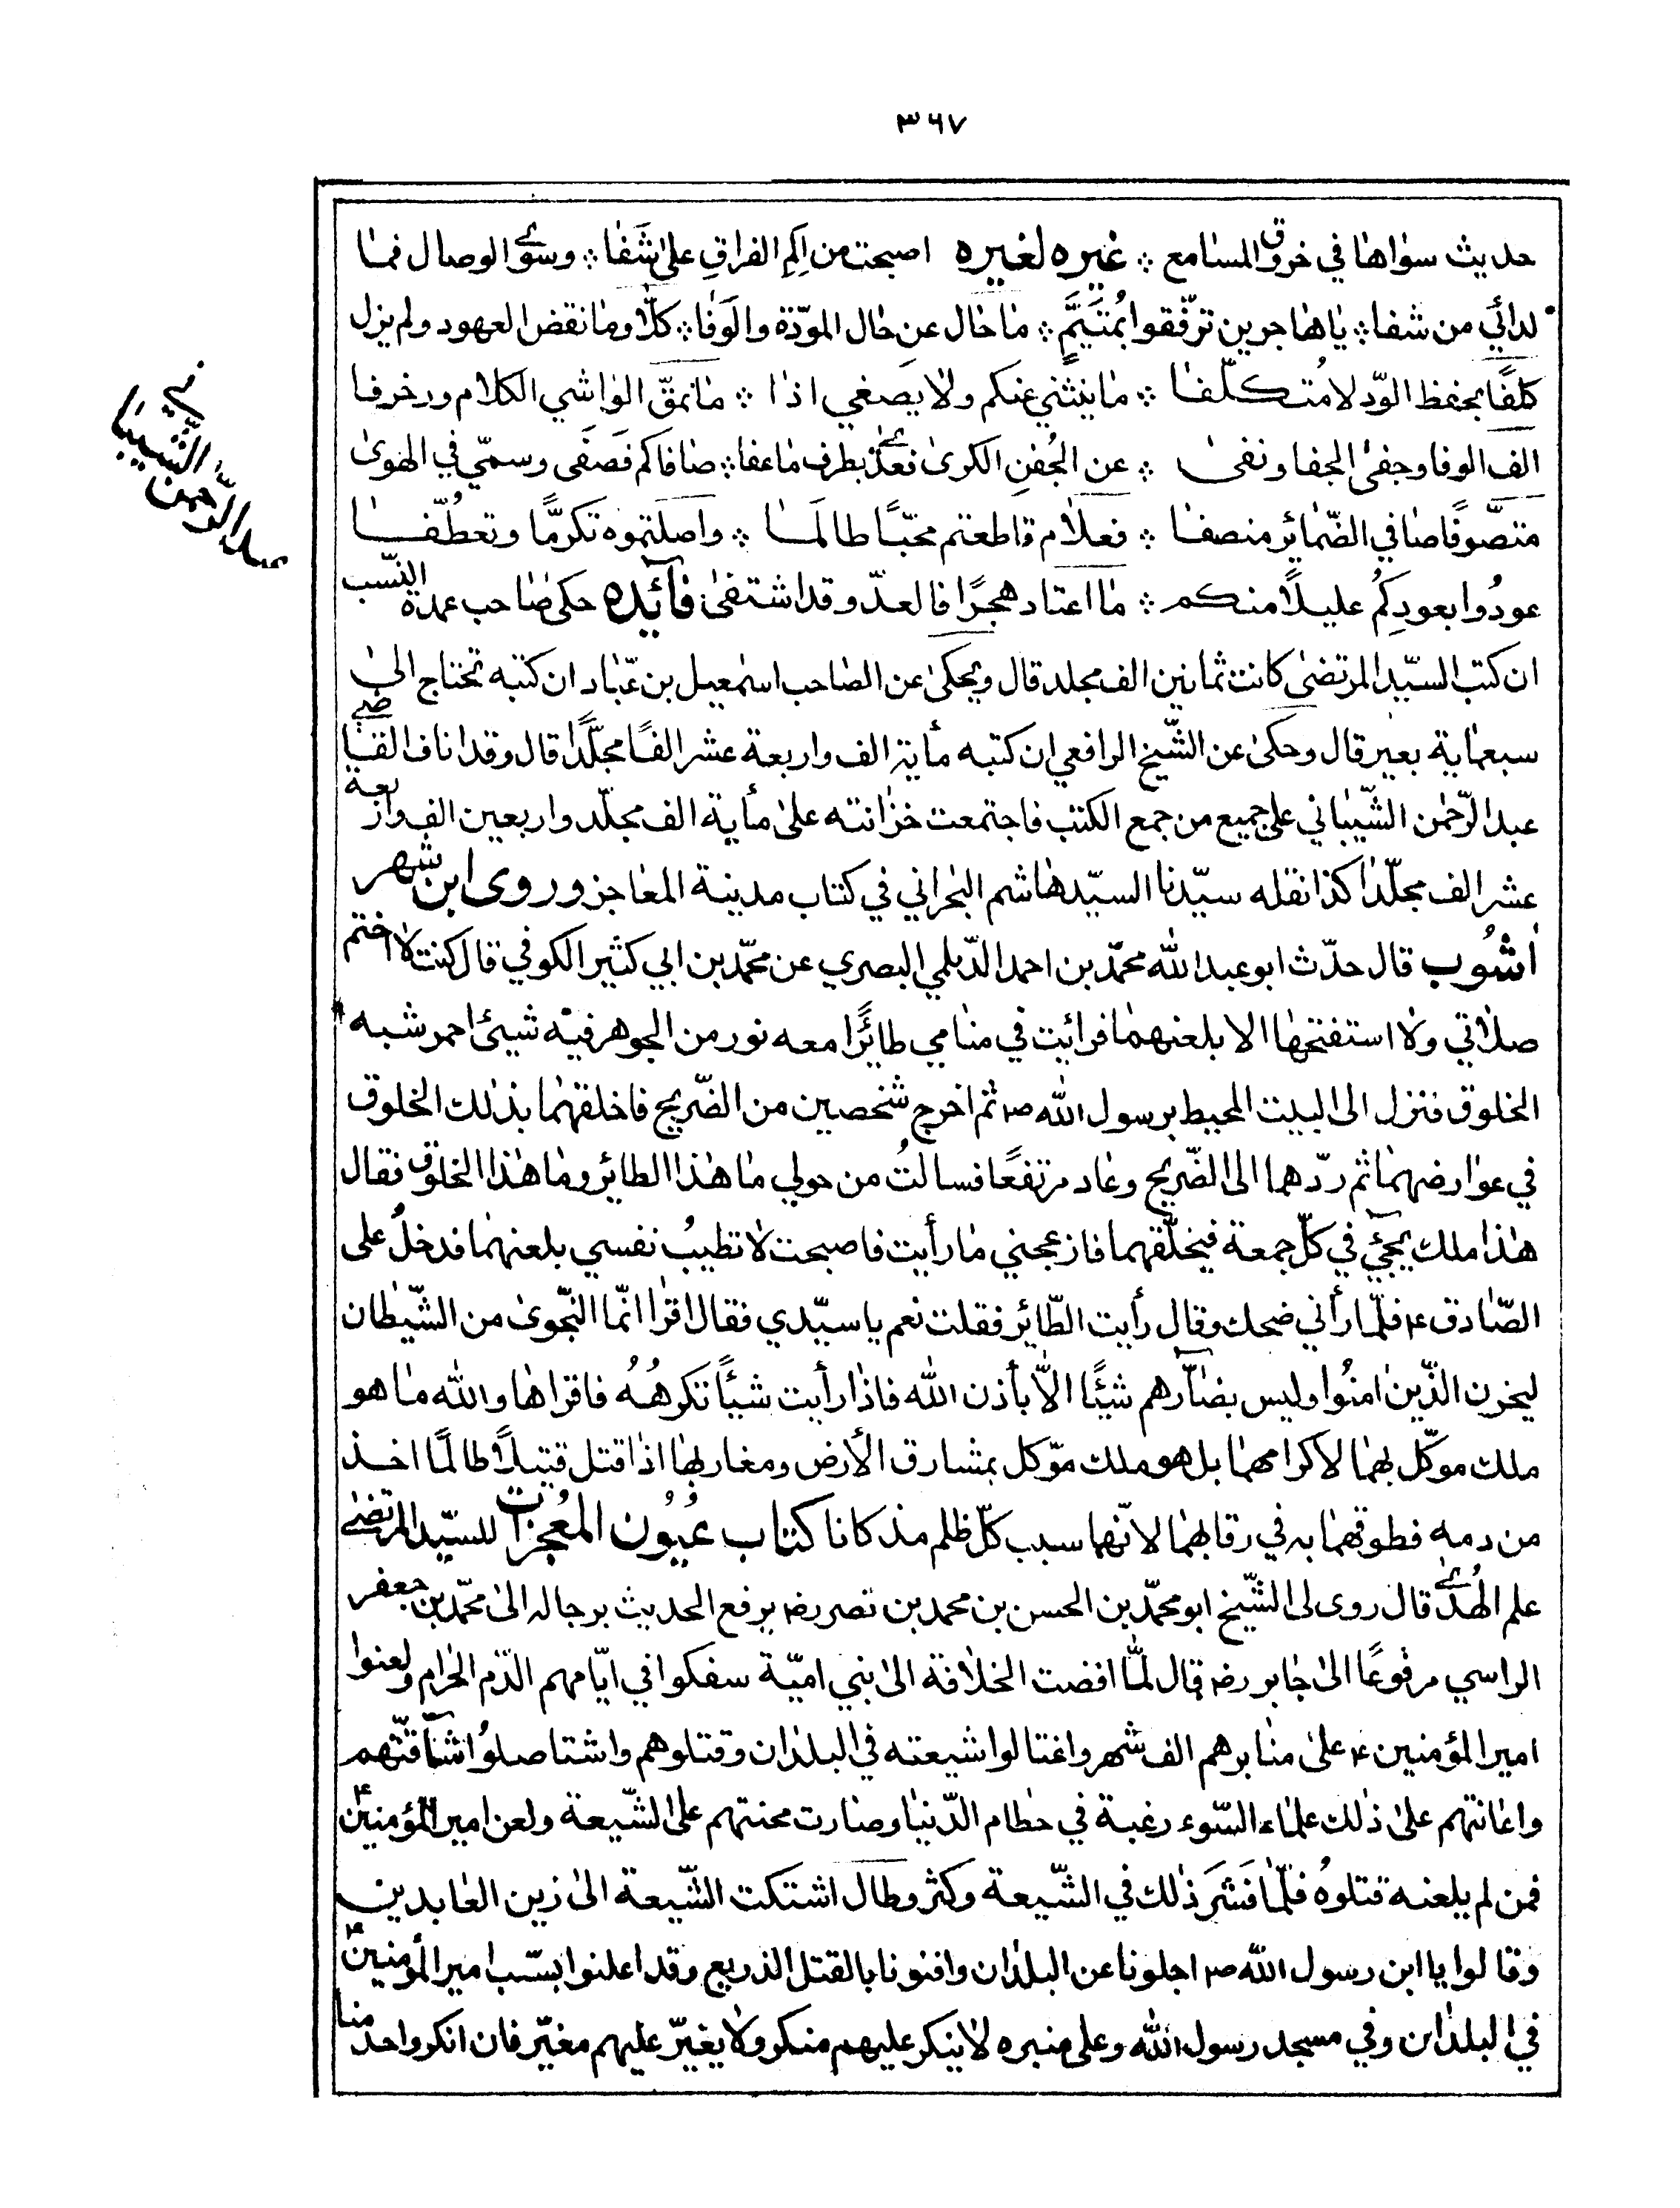 ٣٦٧
حديث سواها في خروق المسامع ؞ غيره لغيره اصبحت من الم الفراق على شفا ؞ وسوى الوصال فما
لدائي من شفا ؞ ياهاجرين ترفّقوا بمُتَيَّمٍ ؞ ما حال عن حال المودّة والوَفا ؞ كلّا وما نقض العهود ولم يزل
كلفًا بحفظ الودّ لا مُتكلّفا ؞ ما ينثني عنكم ولا يصغي اذا ؞ ما نمّق الواشي الكلام وزخرفا
الف الوفا وجفى الجفا ونفى ؞ عن الجُفنِ الكرى فعدى بطرف ما غفا ؞ صافاكم فَصَفَى وسمّي في الهوى
متصّوفًا صافي الضّمائر منصفا ؞ فعلام قاطعتم محبّاً طالَما ؞ واصلتموه تكرمًّا وتعطُّفا
عودُوا بعودِكُم عليلًا منكم ؞ ما اعتاد هجرًا فالعدّو قد اشتفى فآئده حكى صاحب عمدة النّسب
ان كتب السيّد المرتضى كانت ثمانين الف مجلد قال ويحكى عن الصاحب اسمعيل بن عبّاد ان كتبه تحتاج الى
سبعماية بعير قال وحكى عن الشّيخ الرافعي ان كتبه مأية الف واربعة عشر الفًا مجلّدًا قال وقد اناف القاضي
عبد الرّحمن الشّيباني على جميع من جمع الكتب فاجتمعت خزانته على مأية الف مجلّد واربعين الف واربعة
عشر الف مجلّدا كذا نقله سيّدنا السيّد هاشم البحراني في كتاب مدينة المعاجز وروى ابن شهر
اشُوب قال حدّث ابو عبد الله محمّد بن احمد الدّيلمي البصري عن محمّد بن ابي كثير الكوفي قال كنت لا اختم
صلاتي ولا استفتحها الا بلعنهما فرائيت في منامي طائرًا معه نور من الجوهر فيه شيئ احمر شبه
الخلوق فنزل الى البيت المحيط برسول الله ص ثم اخرج شخصين من الضّريح فاخلقهما بذلك الخلوق
في عوارضهما ثم ردّهما الى الضّريح وعاد مرتفعًا فسالتُ من حولي ما هذا الطائر وما هذا الخلوق فقال
هذا ملك يجيئ في كلّ جمعة فيخلّقهما فازعجني ما رأيت فاصبحت لا تطيبُ نفسي بلعنهما فدخلُ على
الصّادق ع فلمّا رأني ضحك وقال رأيت الطّائر فقلت نعم يا سيّدي فقال اقرا انّما النّجوى من الشّيطان
ليحزن الذّين امنُوا وليس بضآرّهم شيئًا الاّ بأذن الله فاذا رأيت شيئًا تكرهُهُ فاقراها والله ما هو
ملك موكّل بهما لاكرامهما بل هو ملك موّكل بمشارق الأرض ومغاربها اذا قتل قتيلًا ظالمًا اخذ
من دمه فطوقهما به في رقابهما لانّهما سبب كلّ ظلم مذ كانا كتاب عُيُون المُعجزات للسيّد المرتضى
علم الهُدى قال روى لى الشّيخ ابو محمّد بن الحسن بن محمد بن نصر رض يرفع الحديث برجاله الى محمّد بن جعفر
الراسي مرفوعًا الى جابر رض قال لمّا افضت الخلافة الى بني اميّة سفكوا في ايّامهم الدّم الحرام ولعنوا
امير المؤمنين ع على منابرهم الف شهر واغتالوا شيعته في البلدان وقتلوهم واشتاصلوُا شآفتّهم
واعانتهم على ذلك علماء السّوء رغبة في حطام الدّنيا وصارت محنتهم على الشّيعة ولعن امير المؤمنين ع
فمن لم يلعنه قتلوهُ فلمّا فَشَرَ ذلك في الشّيعة وكثر وطال اشتكت الشّيعة الى زين العابدين ع
وقالوا يا ابن رسول الله ص اجلونا عن البلدان وافنونا بالقتل الذريع وقد اعلنوا بسّب امير المؤمنين ع
في البلدان وفي مسجد رسول الله وعلى منبره لا ينكر عليهم منكر ولا يغيّر عليهم مغيّر فان انكر واحد منا
عبد الرّحمن الشّيباني